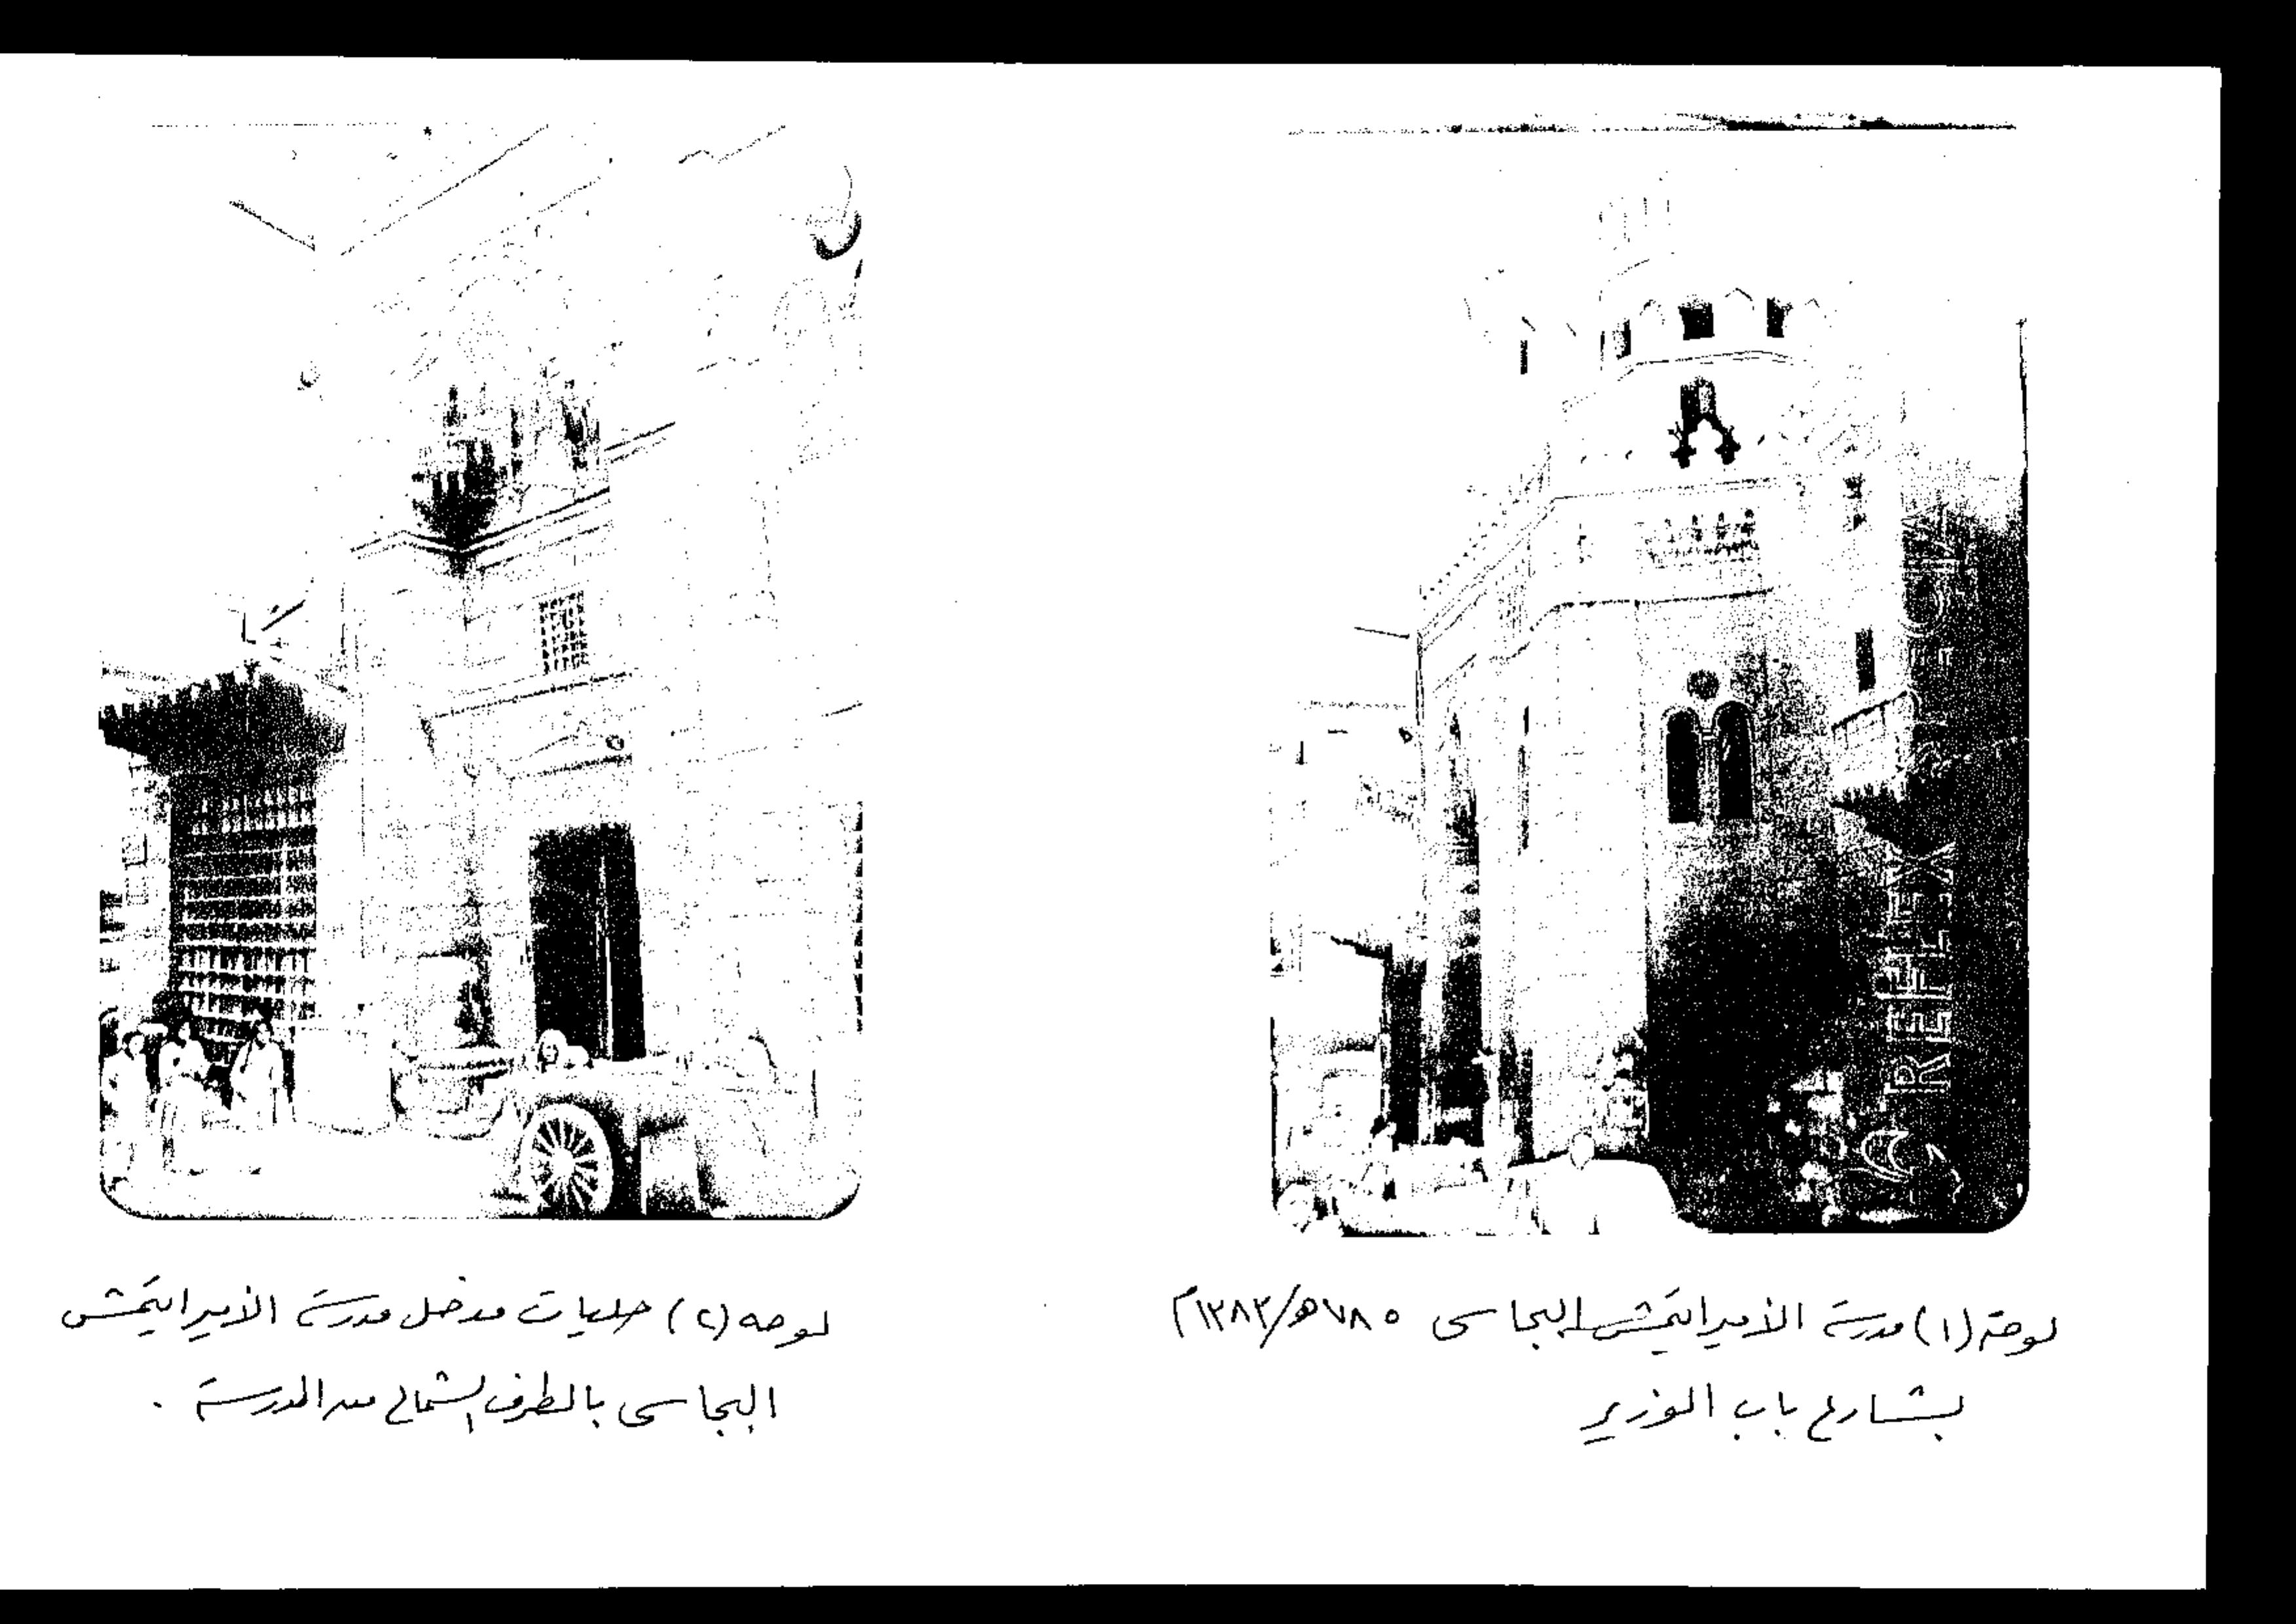 لوحة (١) مدرسة الأمير ايتمش البجاسى ٧٨٥هـ/١٣٨٣م
بشارع باب الوزير
لوحه (٢) حليات مدخل مدرسة الأمير ايتمش
البجاسى بالطرف الشمالى من المدرسة .
REFLEX